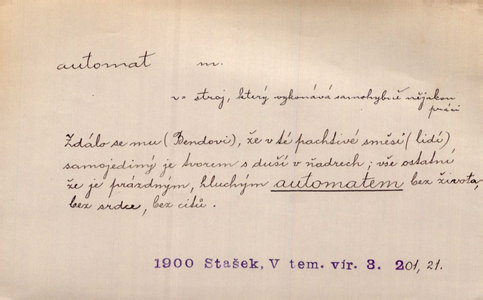 automat m.
v= stroj, který vykonává samohybně nějakou
práci
Zdálo se mu (Bendovi), že v té pachtivé směsi (lidí)
samojediný je tvorem s duší v ňadrech; vše ostatní
že je prázdným, hluchým automatem bez života,
bez srdce, bez citů.
1900 Stašek, V tem. vír. 3. 201, 21.